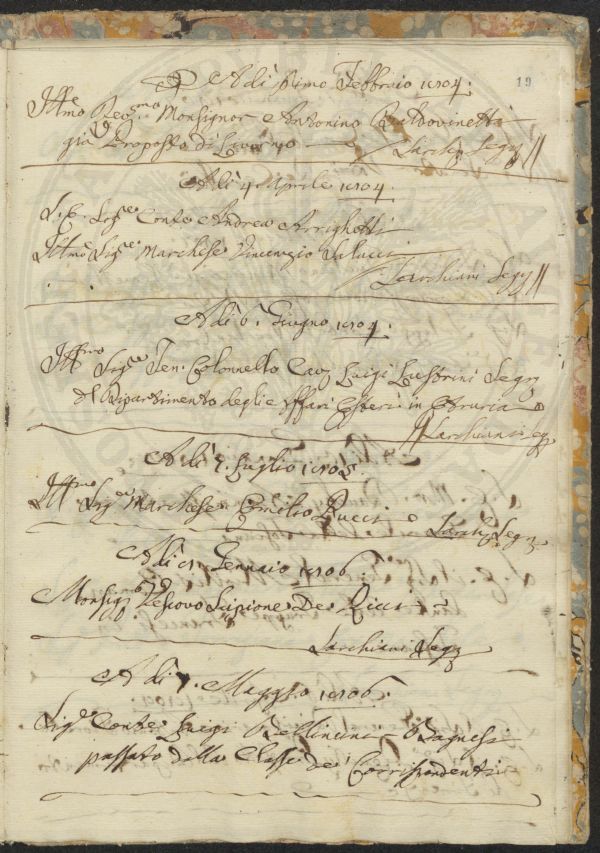 A dì primo Febbraio 1804. 19
Ill.mo Rev.mo Monsignor Antonino Baldovinetti
già Proposto di Livorno Sarch. Segr.
A dì 4 Aprile 1804.
Sig.re Conte Andrea Arrighetti
Ill.mo Sig.re Marchese Vincenzio Sarchiani Segr.
A dì 6. Giugno 1804.
Ill.mo Sig.re Ten. Colonnello Cav. Luigi Segr.
Dipartimento degli Affari Esteri in Etruria
Sarchiani Seg.
A dì Luglio 1805.
Ill.mo Sig.re Marchese Emilio Pucci Sarch. Segr.
A dì Gennaio 1806.
Monsig.re Vescovo Scipione De Ricci
Sarchiani Segr.
A dì 7. Maggio 1806.
Sig.re Conte Luigi Bellincini Bagnesi
passato dalla Classe de' Corrispondenti